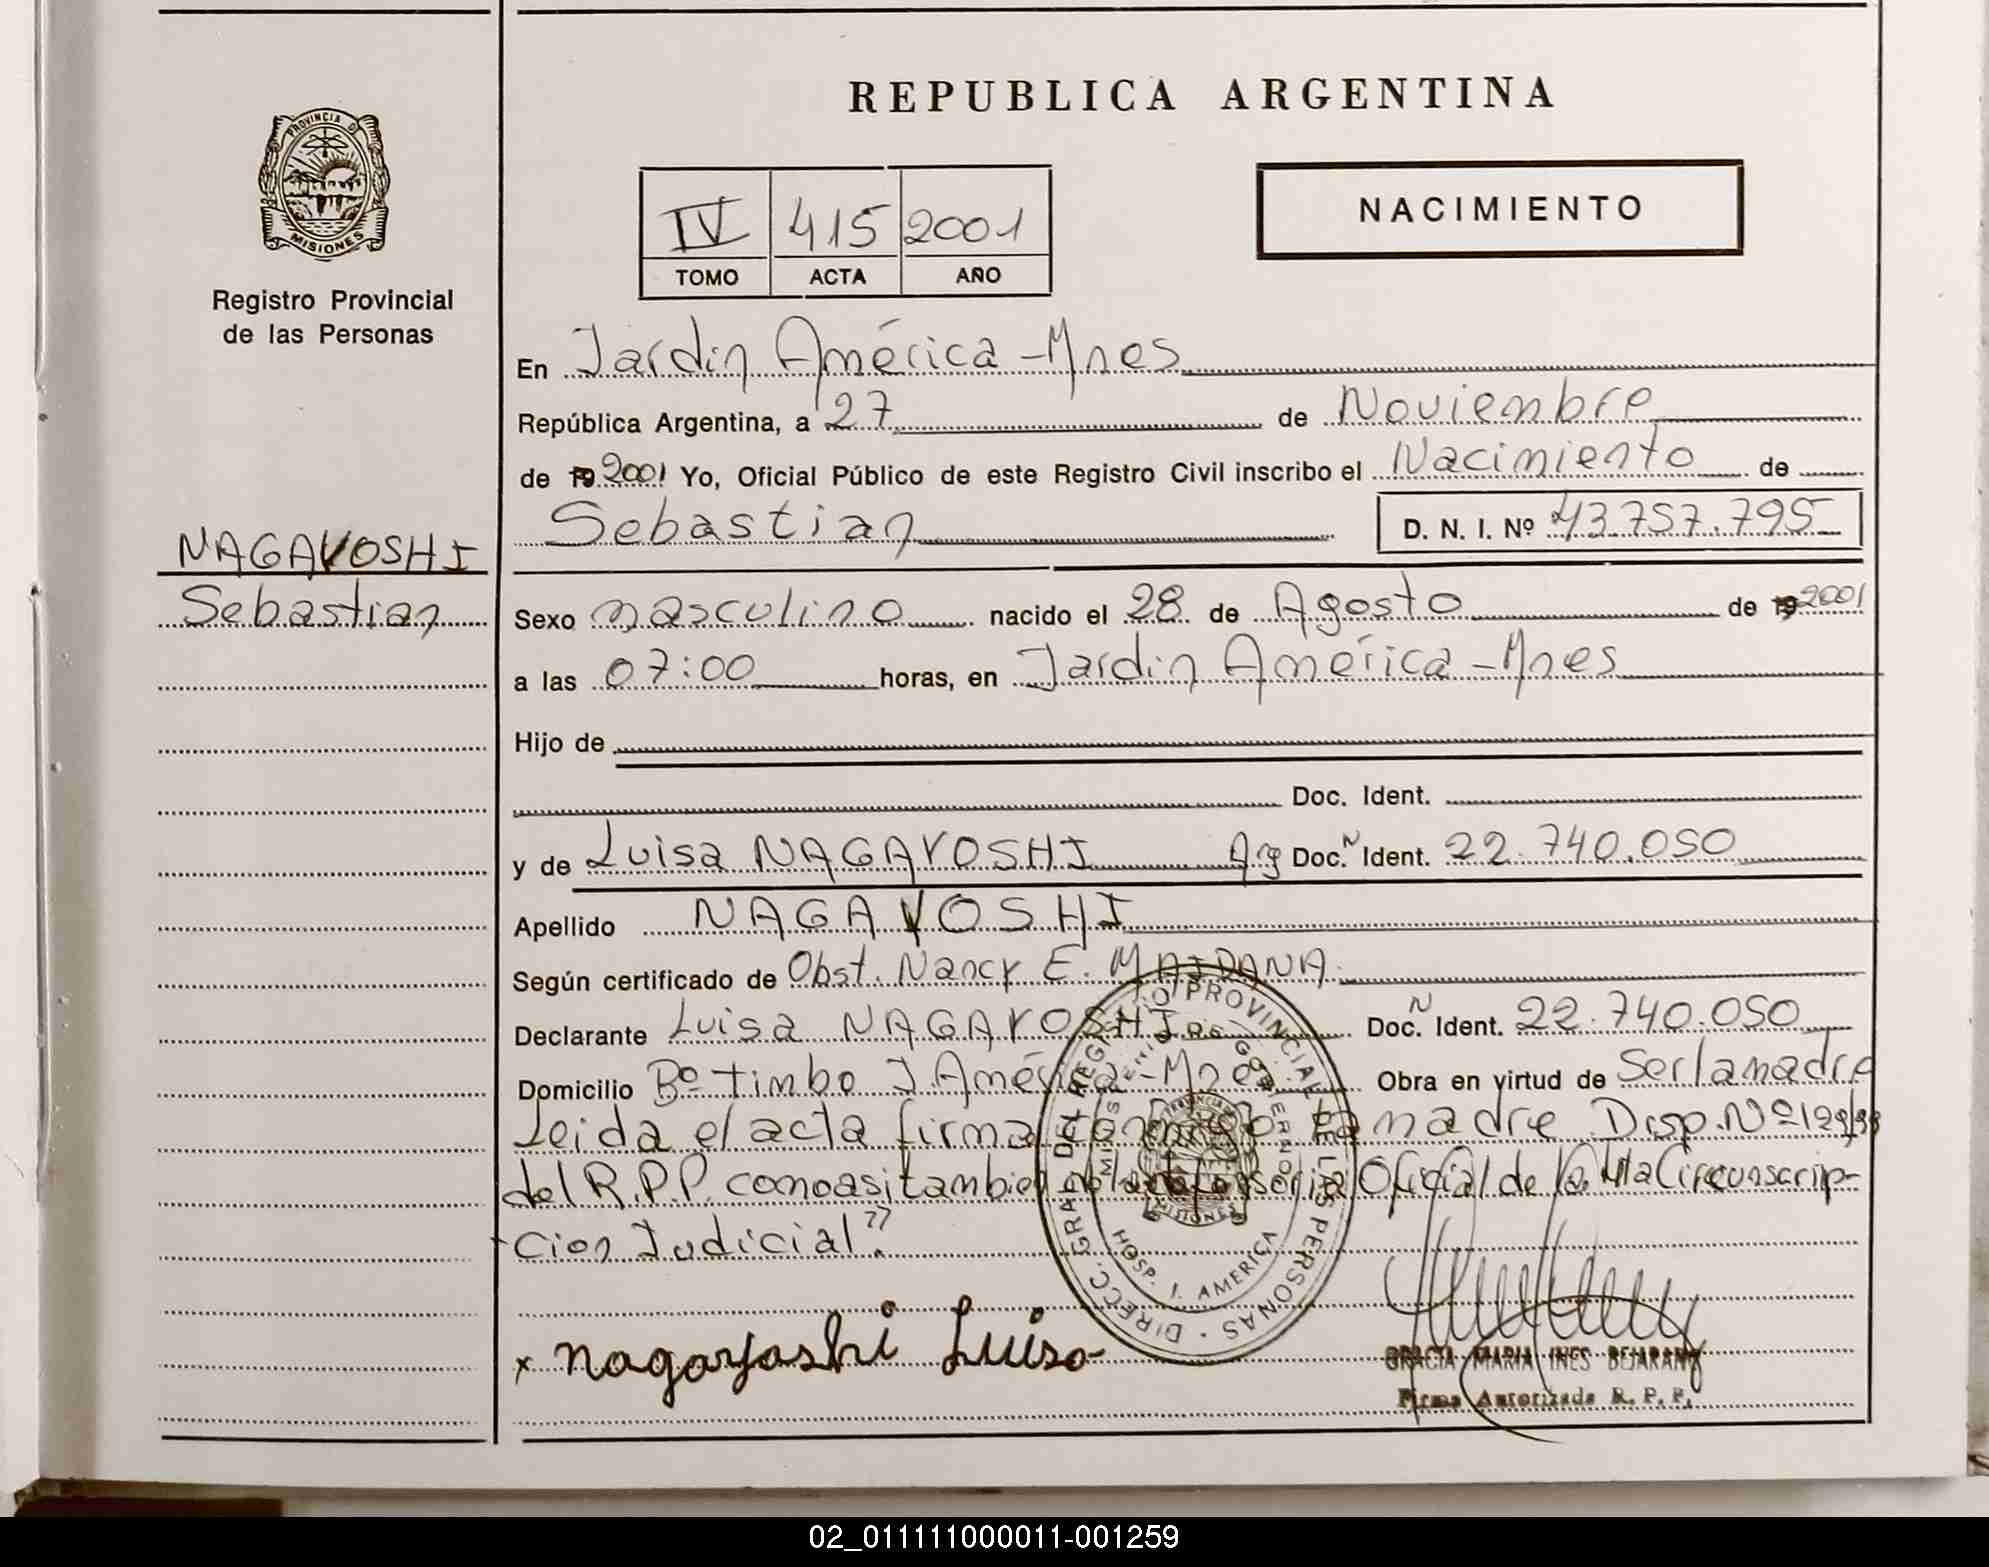 REPUBLICA ARGENTINA
PROVINCIA DE
MISIONES
Registro Provincial
de las Personas
NACIMIENTO
IV 415 2001
TOMO ACTA AÑO
En Jardin América - Mnes
República Argentina, a 27 de Noviembre
de 19 2001 Yo, Oficial Público de este Registro Civil inscribo el Nacimiento de
Sebastian D. N. I. Nº 43.757.795
NAGAYOSHI
Sebastian
Sexo masculino nacido el 28 de Agosto de 19 2001
a las 07:00 horas, en Jardin América - Mnes
Hijo de
Doc. Ident.
y de Luisa NAGAYOSHI Arg Doc. N Ident. 22.740.050
Apellido NAGAYOSHI
Según certificado de Obst. Nancy E. MAIDANA
Declarante Luisa NAGAYOSHI Doc. N Ident. 22.740.050
Domicilio Bº timbo J. América - Mnes Obra en virtud de Ser la madre
Leida el acta firma conmigo la madre Disp. Nº 129/98
del R.P.P. como asi tambien Oficial de la IIIa Circunscrip-
cion Judicial".
DIRECC. GRAL DEL REGISTRO PROVINCIAL DE LAS PERSONAS
MINISTERIO DE GOBIERNO
MISIONES
HOSP. J. AMERICA
x Nagayoshi Luisa
GRACIA MARIA INES BEJARANO
Firma Autorizada R. P. P.
02_011111000011-001259